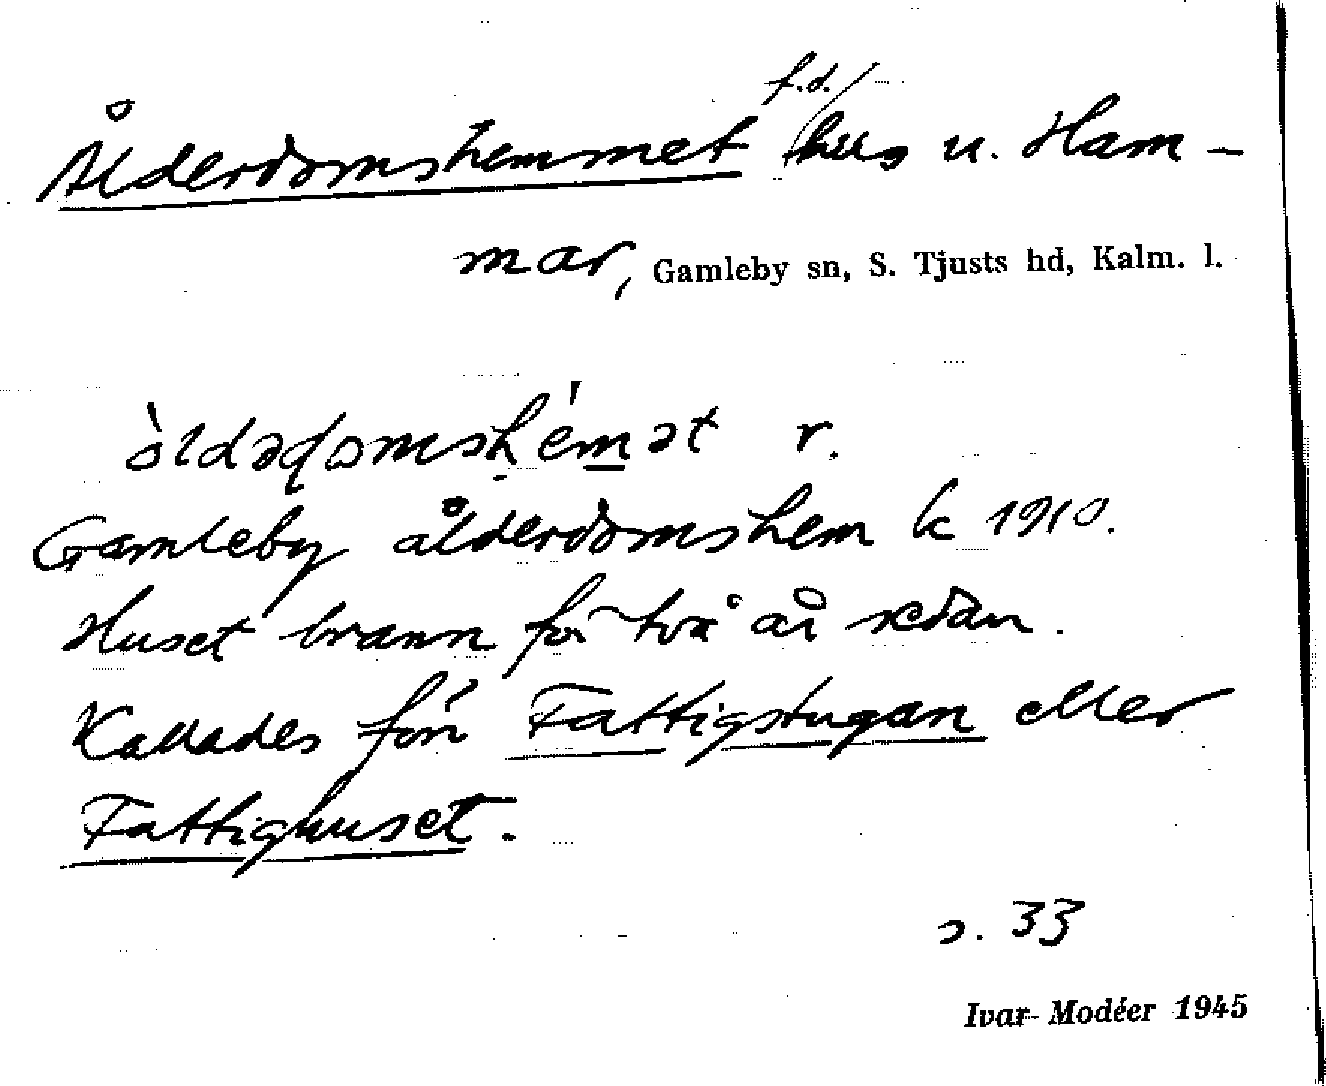 Ålderdomshemmet f.d. hus u. Ham-
mar, Gamleby sn, S. Tjusts hd, Kalm. l.
r.
Gamleby ålderdomshem k 1910.
Huset brann för två år sedan.
Kallades förr Fattigstugan eller
Fattighuset.
s. 33
Ivar Modéer 1945